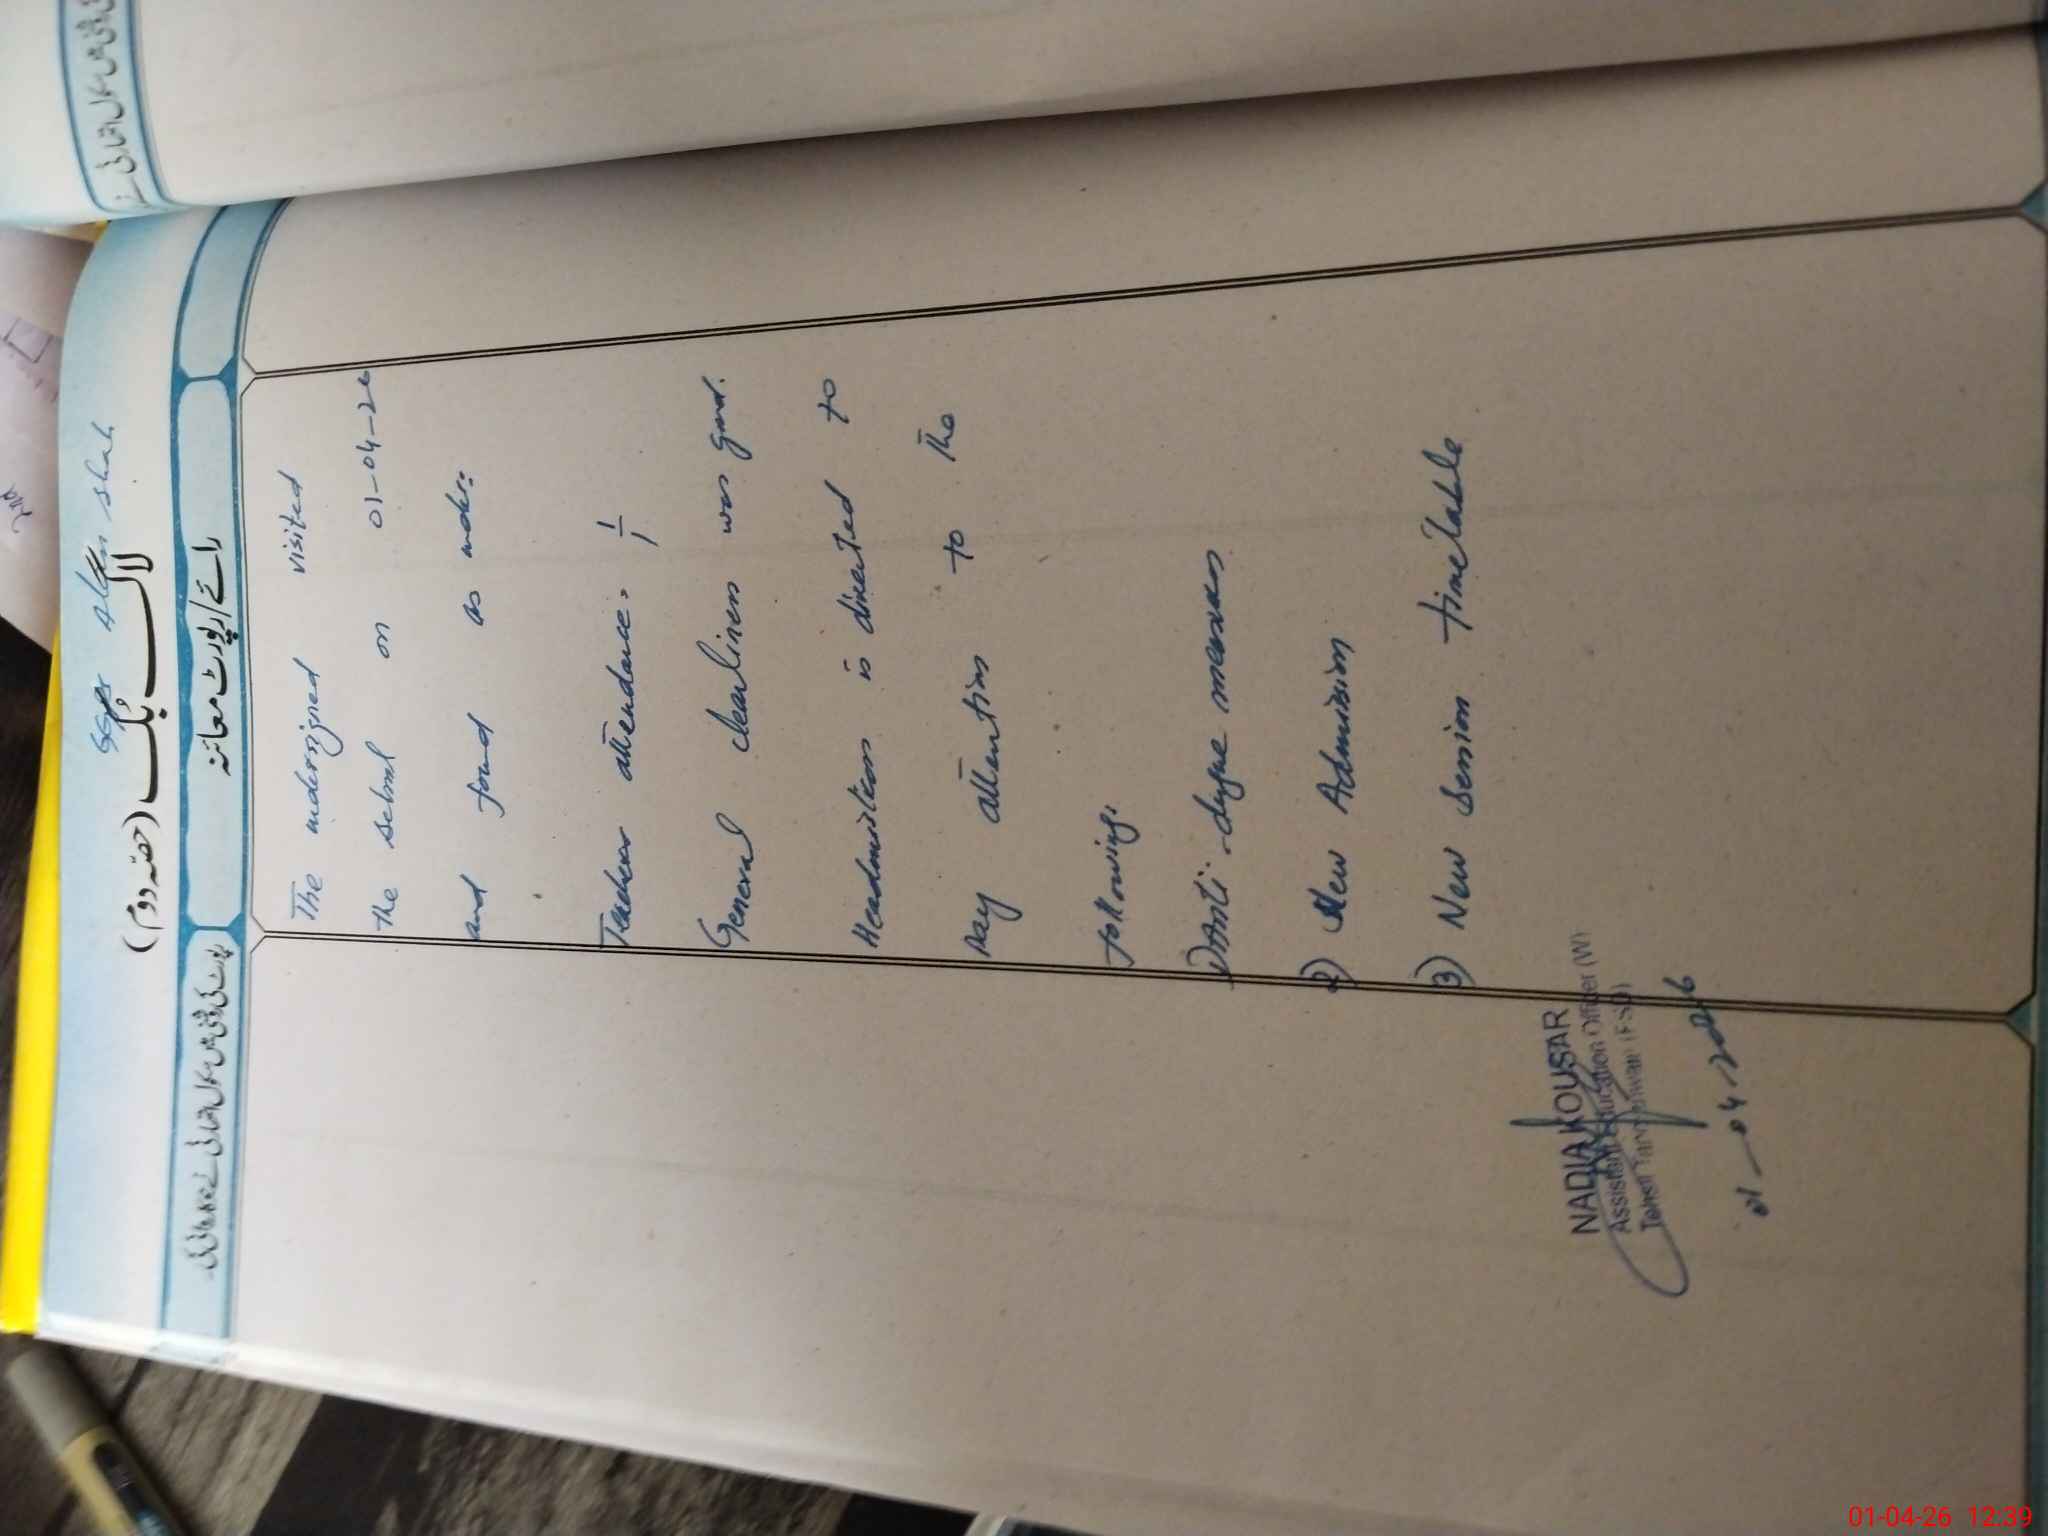 Alam shah
لاگ بُک (حصّہ دوم)
رائے/رپورٹ معائنہ
The undersigned visited
the school on 01-04-26
and found as under:
Teacher attendance: 1/1
General cleanliness was good.
Headmistress is directed to
pay attention to the
following.
1) Anti-dengue measures
2) New Admission
3) New session timetable
NADIA KOUSAR
Assistant Education Officer (W)
Tehsil (FSD)
01-04-2026
01-04-26 12:39